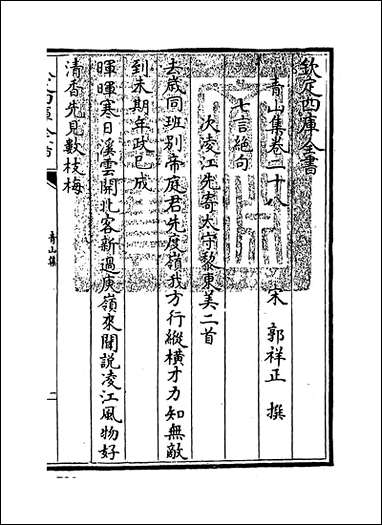 欽定四庫全書
青山集卷二十八
宋 郭祥正 撰
七言絶句
次凌江先寄太守黎東美二首
去歲同班別帝庭君先度嶺我方行縱橫才力知無敵
到未期年政已成
暉暉寒日溪雲開北客新過庾嶺來聞說凌江風物好
清香先見數枝梅
青山集